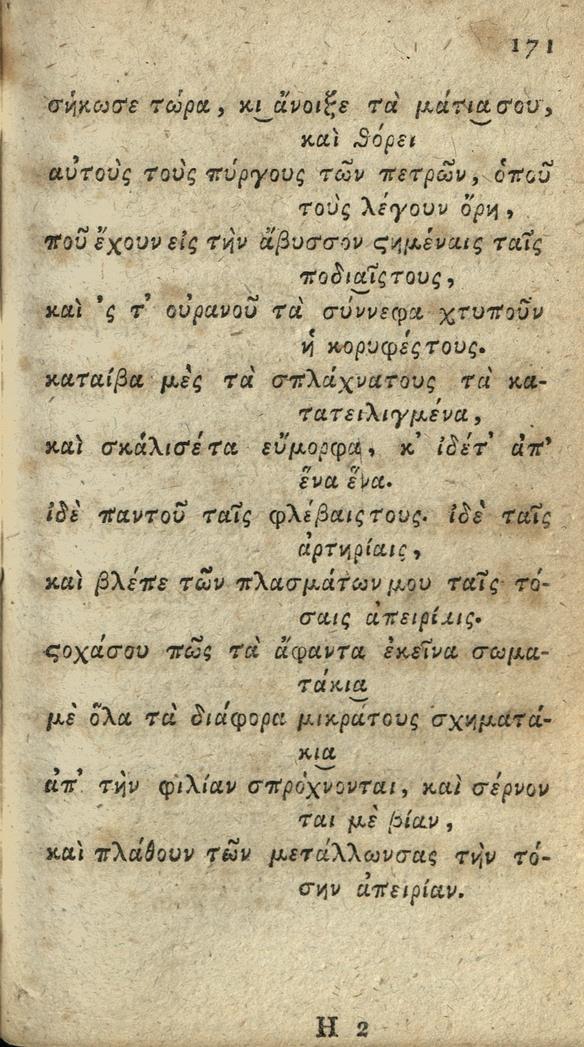 171
σήκωσε τώρα, κι ἄνοιξε τὰ μάτια σου,
καὶ θόρει
αὐτοὺς τοὺς πύργους τῶν πετρῶν, ὁποῦ
τοὺς λέγουν ὄρη,
ποῦ ἔχουν εἰς τὴν ἄβυσσον ϛημέναις ταῖς
ποδιαῖς τους,
καὶ 'ς τ' οὐρανοῦ τὰ σύννεφα χτυποῦν
ἡ κορυφές τους.
καταίβα μὲς τὰ σπλάχνατους τὰ κα-
τατειλιγμένα,
καὶ σκάλισέ τα εὔμορφα, κ' ἰδέτ' ἀπ'
ἕνα ἕνα.
ἰδὲ παντοῦ ταῖς φλέβαις τους. ἰδὲ ταῖς
ἀρτηρίαις,
καὶ βλέπε τῶν πλασμάτων μου ταῖς τό-
σαις ἀπειρίαις.
ϛοχάσου πῶς τὰ ἄφαντα ἐκεῖνα σωμα-
τάκια
μὲ ὅλα τὰ διάφορα μικράτους σχηματά-
κια
ἀπ' τὴν φιλίαν σπρόχνονται, καὶ σέρνον
ται μὲ βίαν,
καὶ πλάθουν τῶν μετάλλωνσας τὴν τό-
σην ἀπειρίαν.
H 2